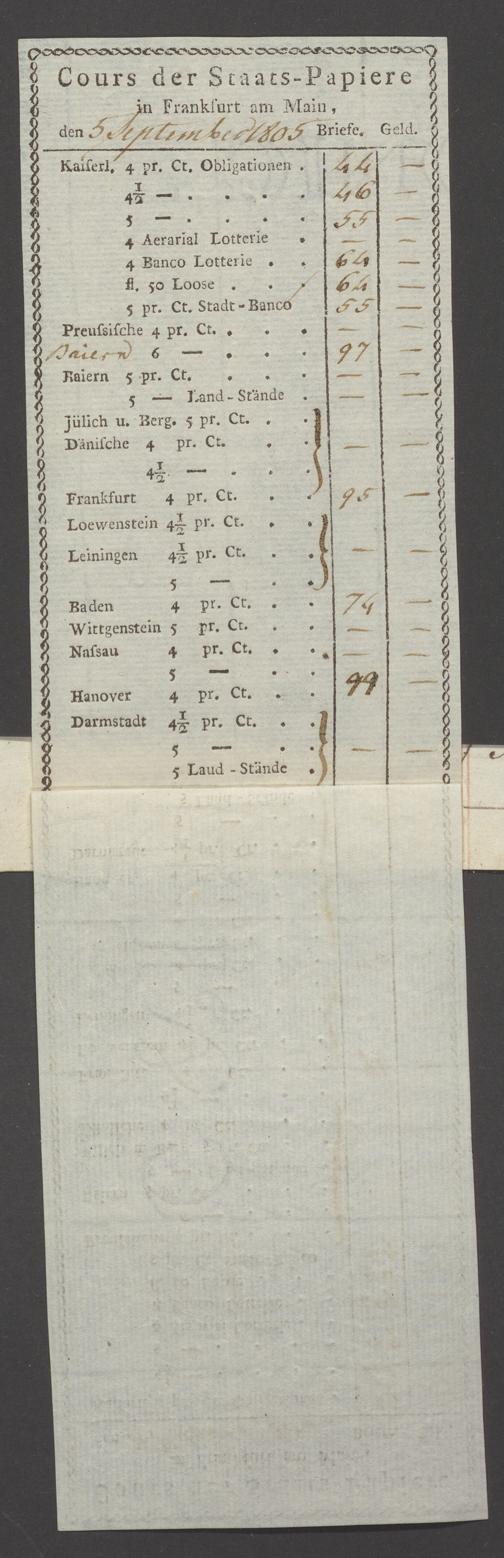 Cours der Staats-Papiere
in Frankfurt am Main,
den 5 September 1805 Briefe. Geld.
Kaiſerl. 4 pr. Ct. Obligationen . 44 —
4½ — . . . . 46 —
5 — . . . . 55 —
4 Aerarial Lotterie . — —
4 Banco Lotterie . . 64 —
fl. 50 Looſe . . . 64 —
5 pr. Ct. Stadt-Banco 55 —
Preuſsiſche 4 pr. Ct. . . . — —
Baiern 6 — . . . 97 —
Baiern 5 pr. Ct. . . . — —
5 — Land-Stände . — —
Jülich u. Berg. 5 pr. Ct. . .
Däniſche 4 pr. Ct. . . — —
4½ — . .
Frankfurt 4 pr. Ct. . . 95 —
Loewenstein 4½ pr. Ct. . .
Leiningen 4½ pr. Ct. . . — —
5 — . .
Baden 4 pr. Ct. . . 74 —
Wittgenstein 5 pr. Ct. . . — —
Naſsau 4 pr. Ct. . . — —
5 — . . 99 —
Hanover 4 pr. Ct. . .
Darmstadt 4½ pr. Ct. . .
5 — . . — —
5 Laud-Stände .